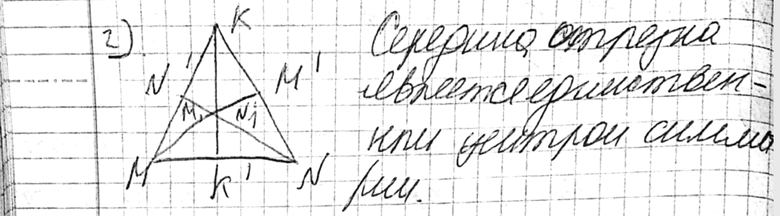 2)
K
N'
M'
M₁ N₁
M K' N
Середина отрезка
является единствен-
ным центром симмет
рии.